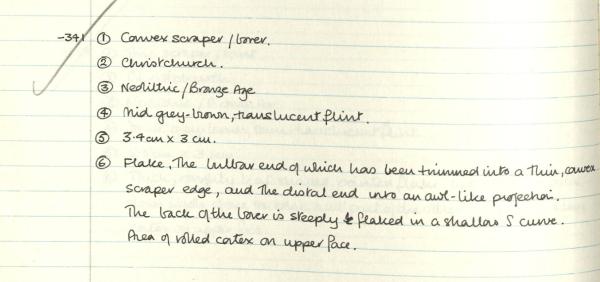 -341 ① Convex scraper/borer.
② Christchurch.
③ Neolithic/Bronze Age
④ Mid grey-brown, translucent flint.
⑤ 3.4cm x 3 cm.
⑥ Flake, The bulbar end of which has been trimmed into a thin, convex
scraper edge, and the distal end into an awl-like projection.
The back of the borer is steeply flaked in a shallow S curve.
Area of rolled cortex on upper face.